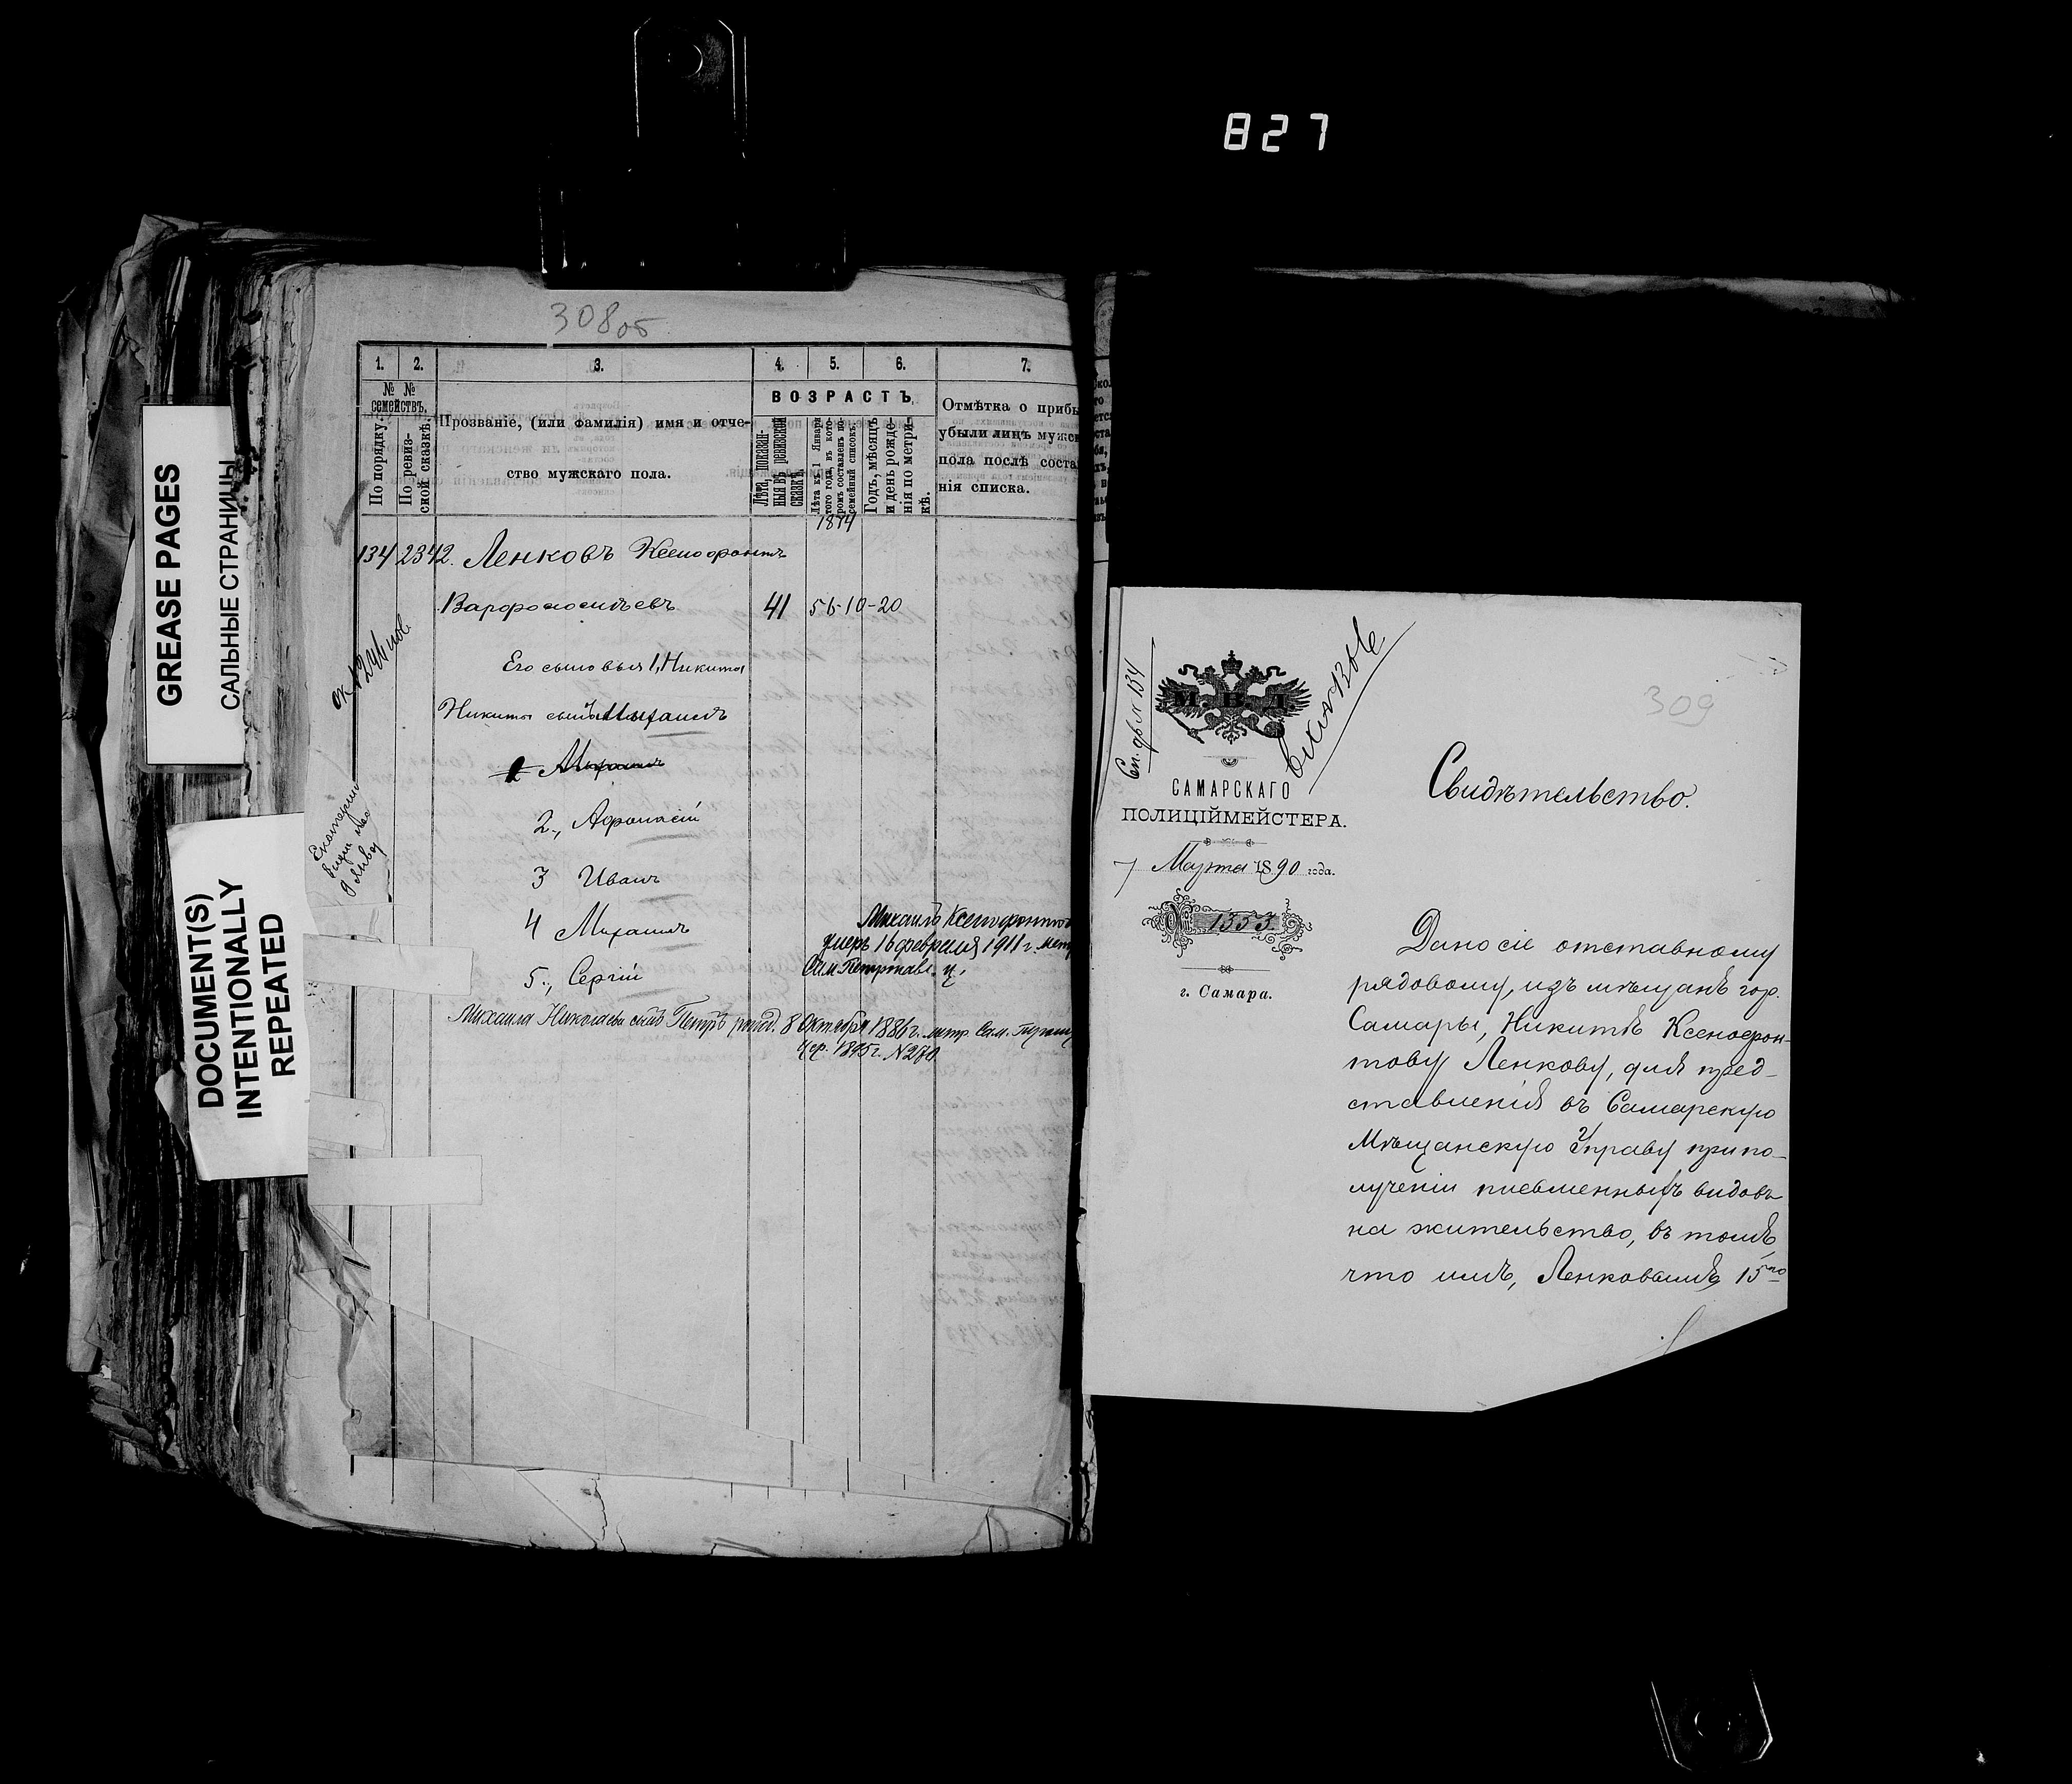 827
GREASE PAGES
САЛЬНЫЕ СТРАНИЦЫ
DOCUMENT(S)
INTENTIONALLY
REPEATED
308об
1. 2. 3. 4. 5. 6. 7.
№ №
семействъ.
По порядку.
По ревиз-
ской сказкѣ.
Прозваніе, (или фамилія) имя и отче-
ство мужскаго пола.
ВОЗРАСТЪ
Лѣта, показан-
ныя въ ревизской
сказкѣ.
Лѣта къ 1 Января
того года, въ кото-
ромъ составленъ по-
семейный списокъ.
Годъ, мѣсяцъ
и день рожде-
нія по метри-
кѣ.
Отмѣтка о прибы
убыли лицъ мужск
пола послѣ соста
нія списка.
1874
134 2342. Ленковъ Ксенофонтъ
41 56-10-20
Его сыновья 1, Никита
Никиты сынъ Михаилъ
2 Михаилъ
2., Афонасій
3 Иванъ
4 Михаилъ
Михаилъ Ксенофонтов
умеръ 16 февраля 1911 г. метр
Сам. Петропавл. ц.
5., Сергій
Михаила Николаева сынъ Петръ рожд. 8 Октября 1886 г. метр. Сам.
цер. 1895 г. № 270
Сп. № 134
М. В. Д.
САМАРСКАГО
ПОЛИЦІЙМЕЙСТЕРА.
7 Марта 1890 года.
№ 1353
г. Самара.
309
Свидѣтельство.
Дано сіе отставному
рядовому, изъ мѣщанъ гор.
Самары, Никитѣ Ксенофон-
тову Ленкову, для пред-
ставленія въ Самарскую
Мѣщанскую Управу при по-
лученіи письменныхъ видовъ
на жительство, въ томъ,
что имъ, Ленковымъ, 15го